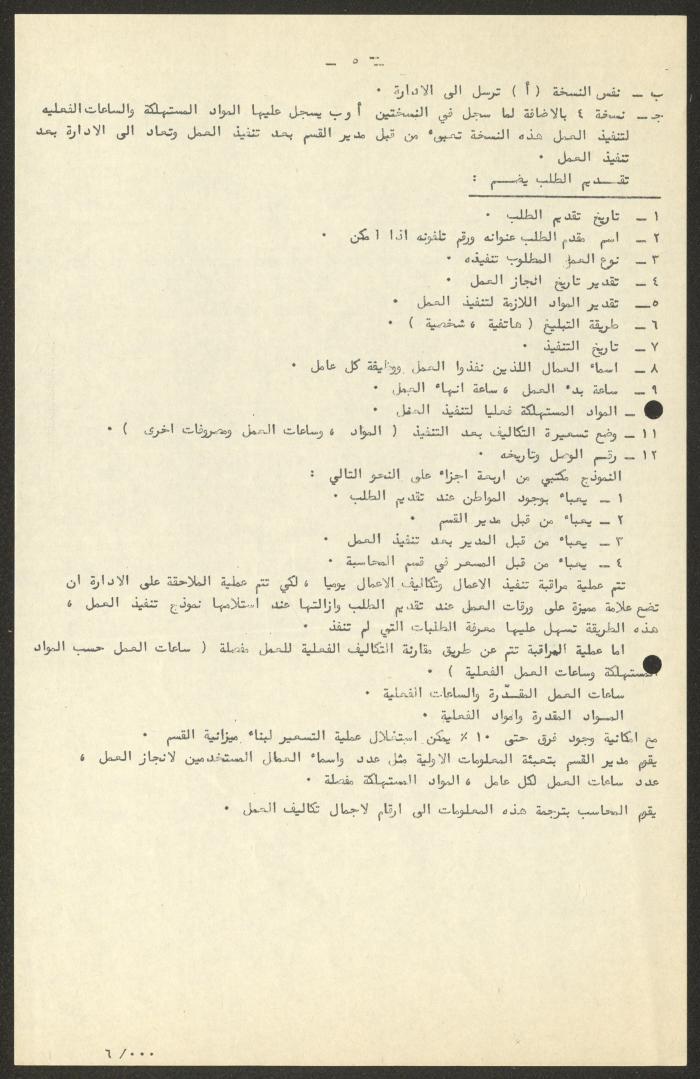 ـ ٥ ـ
ب ـ نفس النسخة ( أ ) ترسل الى الادارة .
جـ ـ نسخة ٤ بالاضافة لما سجل في النسختين أ وب يسجل عليها المواد المستهلكة والساعات الفعليه
لتنفيذ العمل هذه النسخة تعبىء من قبل مدير القسم بعد تنفيذ العمل وتعاد الى الادارة بعد
تنفيذ العمل .
تقـــديم الطلب يضـــم :
١ ـ تاريخ تقديم الطلب .
٢ ـ اسم مقدم الطلب عنوانه ورقم تلفونه اذا امكن .
٣ ـ نوع العمل المطلوب تنفيذه .
٤ ـ تقدير تاريخ انجاز العمل .
٥ ـ تقدير المواد اللازمة لتنفيذ العمل .
٦ ـ طريقة التبليغ ( هاتفية ، شخصية ) .
٧ ـ تاريخ التنفيذ .
٨ ـ اسماء العمال اللذين نفذوا العمل ووظيفة كل عامل .
٩ ـ ساعة بدء العمل ، ساعة انهاء العمل .
ـ المواد المستهلكة فعليا لتنفيذ العمل .
١١ ـ وضع تسعيرة التكاليف بعد التنفيذ ( المواد ، وساعات العمل ومصروفات اخرى ) .
١٢ ـ رقـم الوصل وتاريخه .
النموذج مكتبي من اربعة اجزاء على النحو التالي :
١ ـ يعباء بوجود المواطن عند تقديم الطلب .
٢ ـ يعباء من قبل مدير القسم .
٣ ـ يعباء من قبل المدير بعد تنفيذ العمل .
٤ ـ يعباء من قبل المسعر في قسم المحاسبة .
تتم عملية مراقبة تنفيذ الاعمال وتكاليف الاعمال يوميا ، لكي تتم عملية الملاحقة على الادارة ان
تضع علامة مميزة على ورقات العمل عند تقديم الطلب وازالتها عند استلامها نموذج تنفيذ العمل ،
هذه الطريقة تسهل عليها معرفة الطلبات التي لم تنفذ .
اما عملية المراقبة تتم عن طريق مقارنة التكاليف الفعلية للعمل مفصلة ( ساعات العمل حسب المواد
المستهلكة وساعات العمل الفعلية ) .
ساعات العمل المقـدّرة والساعات الفعلية .
المـواد المقدرة وامواد الفعلية .
مع امكانية وجود فرق حتى ١٠ ٪ يمكن استغلال عملية التسعير لبناء ميزانية القسم .
يقوم مدير القسم بتعبئة المعلومات الاولية مثل عدد واسماء العمال المستخدمين لانجاز العمل ،
عدد ساعات العمل لكل عامل ، المواد المستهلكة مفصلة .
يقوم المحاسب بترجمة هذه المعلومات الى ارقام لاجمال تكاليف العمل .
٦ /٠٠٠